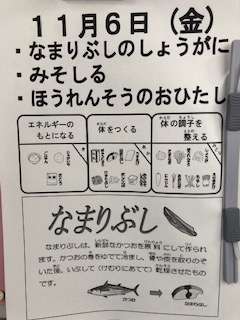 11月6日（金）
・なまりぶしのしょうがに
・みそしる
・ほうれんそうのおひたし
エネルギーの
もとになる
体をつくる
体の調子を
整える
なまりぶし
なまりぶしは、新鮮なかつおを原料にして作られ
ます。かつおの身をゆでて冷まし、骨や皮を取りのぞ
いた後、いぶして（けむりにあてて）乾燥させたもの
です。
かつお